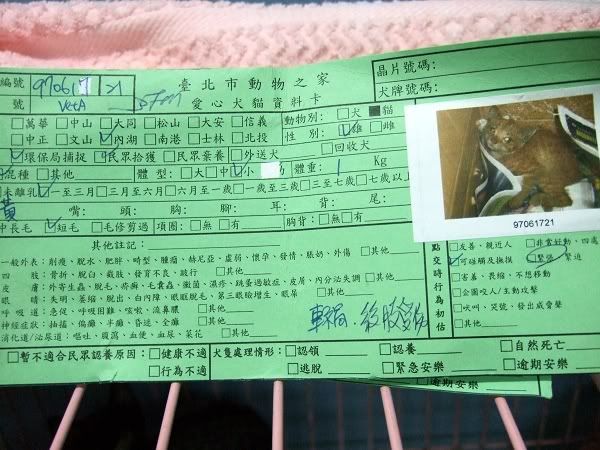 編號 9706 17 21 臺北市動物之家 晶片號碼：
號 VetA 愛心犬貓資料卡 犬牌號碼：
□萬華 □中山 □大同 □松山 □大安 □信義 動物別：□犬 ■貓
□中正 □文山 ☑內湖 □南港 □士林 □北投 性別：☑雄 □雌
☑環保局捕捉 □民眾拾獲 □民眾棄養 □外送犬 □回收犬
品種 □其他 體型：□大 □中 ☑小 體重：1 Kg
未離乳 ☑一至三月 □三月至六月 □六月至一歲 □一歲至三歲 □三至七歲 □七歲以上
黃 嘴： 頭： 胸： 腳： 耳： 背： 尾：
中長毛 ☑短毛 □毛修剪過 項圈：□無 □有 胸背：□無 □有
97061721
其他註記：
一般外表：削瘦、脫水、肥胖、畸型、腫瘤、赫尼亞、虛弱、懷孕、發情、脹奶、外傷 □其他
四肢：骨折、脫臼、截肢、發育不良、跛行 □其他
皮膚：外寄生蟲、脫毛、疥癬、毛囊蟲、黴菌、濕疹、跳蚤過敏症、皮屑、內分泌失調 □其他
眼睛：失明、萎縮、脫出、白內障、眼眶脫毛、第三眼瞼增生、眼屎 □其他
呼吸道：急促、呼吸困難、咳嗽、流鼻膿 □其他
神經症狀：抽搐、偏癱、半癱、昏迷、全癱 □其他
消化道/泌尿道：嘔吐、腹瀉、血便、血尿、菜花 □其他
車禍
點交時行為初估
□友善、親近人 □非常好動、四處
☑可碰觸及撫摸 ☑緊張、緊迫
□害羞、畏縮、不想移動
□企圖咬人/主動攻擊
□吠叫、哭號、發出威脅聲
□其他
□暫不適合民眾認養原因：□健康不適 犬隻處理情形：□認領 □認養 □自然死亡
□行為不適 □逃脫 □緊急安樂 □逾期安樂
逾期安樂